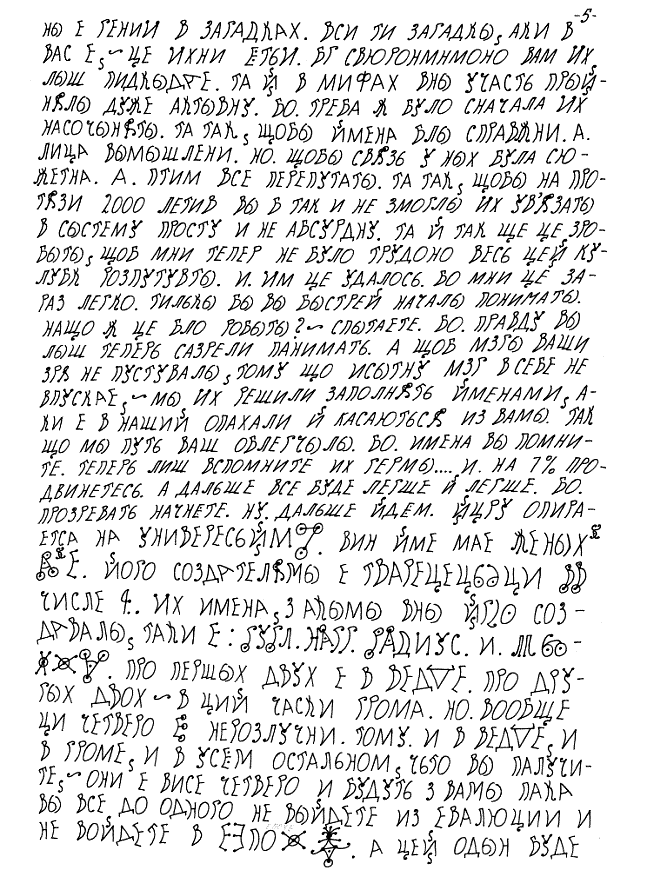 -5-
НЫ Е ГЕНИЙ В ЗАГАДКАХ. ВСИ ТИ ЗАГАДКЫ, АКИ В
ВАС Е, ~ ЦЕ ИХНИ ЕТЬИ. БГ СВЮРОНМНМОНО ВАМ ИХ
ЛЫШ ПИДКЫДАЕ. ТА Й В МИФАХ ВНЫ УЧАСТЬ ПРЫЙ-
НЯЛЫ ДУЖЕ АКТЫВНУ. БО. ТРЕБА Ж БУЛО СНАЧАЛА ИХ
НАСОЧЫНЯТЫ. ТА ТАК, ЩОБЫ ЙМЕНА БЛЫ СПРАВЖНИ. А.
ЛИЦА ВЫМЫШЛЕНИ. НО. ЩОБЫ СВЯЗЬ У НЫХ БУЛА СЮ-
ЖЕТНА. А. ПТИМ ВСЕ ПЕРЕПУТАТЫ. ТА ТАК, ЩОБЫ НА ПРО-
ТЯЗИ 2000 ЛЕТИВ ВЫ Б ТАК И НЕ ЗМОГЛЫ ИХ УВЯЗАТЫ
В СЫСТЕМУ ПРОСТУ И НЕ АБСУРДНУ. ТА Й ТАК ЩЕ ЦЕ ЗРО-
БЫТЫ, ЩОБ МНИ ТЕПЕР НЕ БУЛО ТРУДОНО ВЕСЬ ЦЕЙ КУ-
ЛУБК РОЗПУТУВТЫ. И. ИМ ЦЕ УДАЛОСЬ. БО МНИ ЦЕ ЗА-
РАЗ ЛЕГКО. ТИЛЬКЫ БЫ ВЫ БЫСТРЕЙ НАЧАЛЫ ПОНИМАТЫ.
НАЩО Ж ЦЕ БЛО РОБЫТЫ? ~ СПЫТАЕТЕ. БО. ПРАВДУ ВЫ
ЛЫШ ТЕПЕРЬ САЗРЕЛИ ПАНИМАТЬ. А ЩОБ МЗГЫ ВАШИ
ЗРЯ НЕ ПУСТУВАЛЫ, ТОМУ ЩО ИСЫТНУ МЗГ В СЕБЕ НЕ
ВПУСКАЕ, ~ МЫ ИХ РЕШИЛИ ЗАПОЛНЯТЬ ЙМЕНАМИ, А-
КИ Е В НАШИЙ ОПАХАЛИ Й КАСАЮТЬСЯ ИЗ ВАМЫ. ТАК
ЩО МЫ ПУТЬ ВАШ ОБЛЕГЧЫЛЫ. БО. ИМЕНА ВЫ ПОМНИ-
ТЕ. ТЕПЕРЬ ЛИШ ВСПОМНИТЕ ИХ ГЕРМЫ.... И. НА 7% ПРО-
ДВИНЕТЕСЬ. А ДАЛЬШЕ ВСЕ БУДЕ ЛЕГШЕ Й ЛЕГШЕ. БО.
ПРОЗРЕВАТЬ НАЧНЕТЕ. НУ. ДАЛЬШЕ ЙДЕМ. ЙЦРУ ОПИРА-
ЕТСА НА УНИВЕРЕСЬЙМ. ВИН ЙМЕ МАЕ ЖЕНЫХ
Е. ЙОГО СОЗДАТЕЛЯМЫ Е ТВАРЕЦЕЦЬЦИ ВВ
ЧИСЛЕ 4.. ИХ ИМЕНА, З АКЫМЫ ВНЫ СОЗ-
ДАВАЛЫ, ТАКИ Е: ГУГЛ. НАГГ. РАДИУС. И.
ПРО ПЕРШЫХ ДВУХ Е В ВЕДАЕ. ПРО ДРУ-
ГЫХ ДВОХ ~ В ЦИЙ ЧАСКИ ГРОМА. НО. ВООБЩЕ
ЦИ ЧЕТВЕРО Е НЕРОЗЛУЧНИ. ТОМУ. И В ВЕДАЕ, И
В ГРОМЕ, И В УСЕМ ОСТАЛЬНОМ, ЧЬТО ВЫ ПАЛУЧИ-
ТЕ, ~ ОНИ Е ВИСЕ ЧЕТВЕРО И БУДУТЬ З ВАМЫ ПАКА
ВЫ ВСЕ ДО ОДНОГО НЕ ВЫЙДЕТЕ ИЗ ЕВАЛЮЦИИ И
НЕ ВОЙДЕТЕ В ЕЭПО. А ЦЕЙ ОДЫН БУДЕ